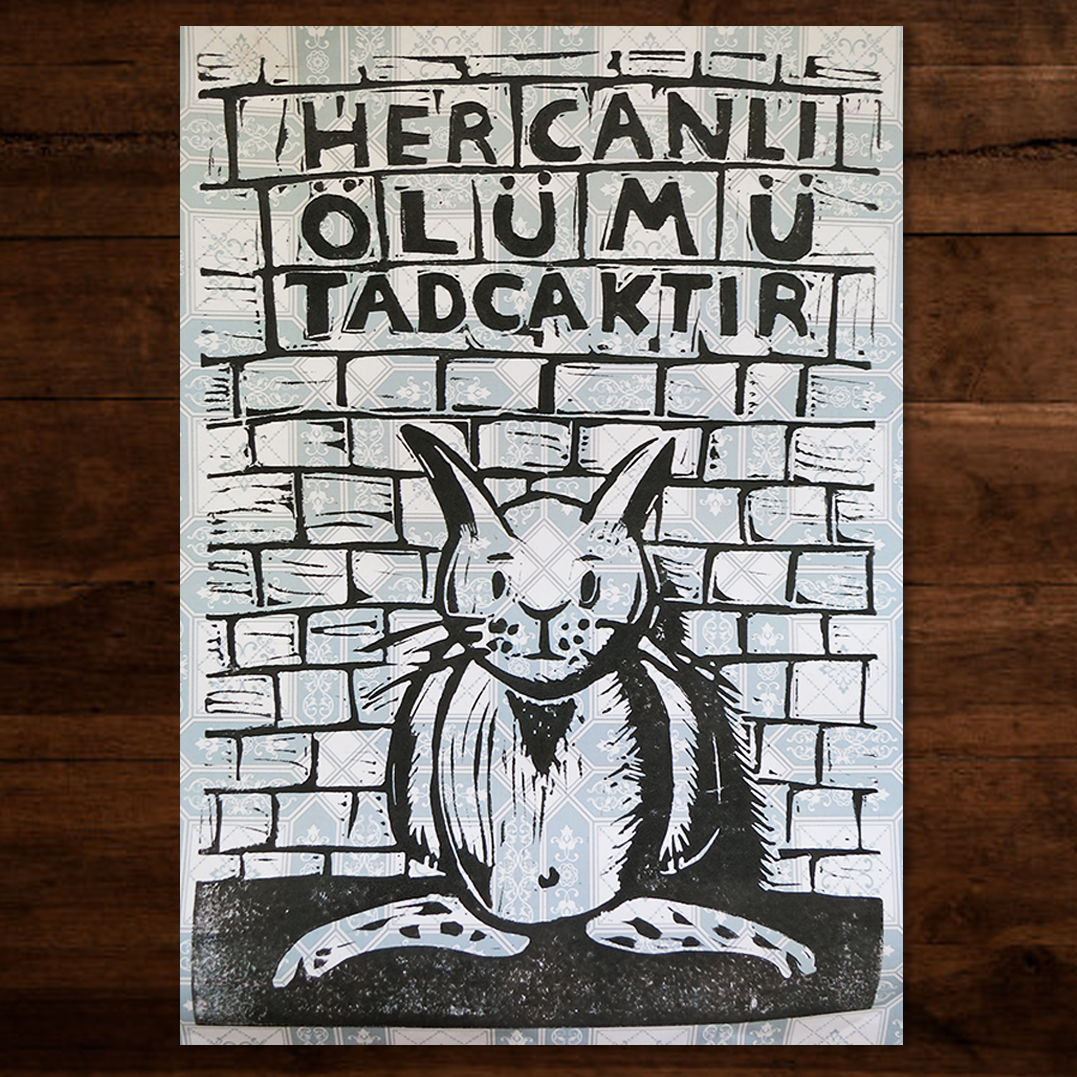 HER CANLI
ÖLÜMÜ
TADCAKTIR